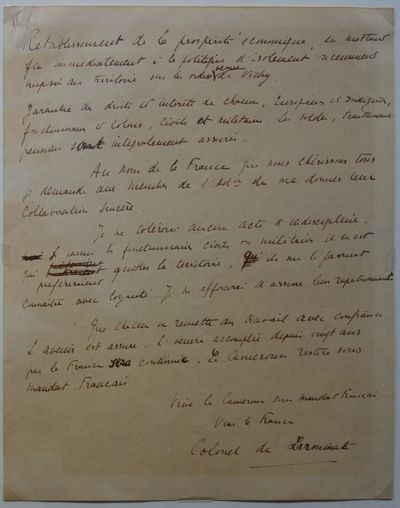 Rétablissement de la prospérité économique, en mettant
fin immédiatement à la politique d'isolement récemment
imposé au territoire sur les ordres venus de Vichy.
Garantie des droits et intérêts de chacun, Européens et Indigènes,
fonctionnaires et colons, civils et militaires. Les soldes, traitements
pensions seront intégralement assurés.
Au nom de la France que nous chérissons tous
je demande aux membres de l' de me donner leur
collaboration sincère.
Je ne tolérerai aucun acte d'indiscipline.
Si parmi les fonctionnaires civils ou militaires il en est
qui préfèrent quitter le territoire, qu'ils me le fassent
connaître avec loyauté. Je m'efforcerai d'assurer leur rapatriement
Que chacun se remette au travail avec confiance.
L'avenir est assuré. L'œuvre accomplie depuis vingt ans
par la France sera continuée. Le Cameroun restera sous
mandat français
Vive le Cameroun sous mandat français
Vive la France
Colonel de Larminat